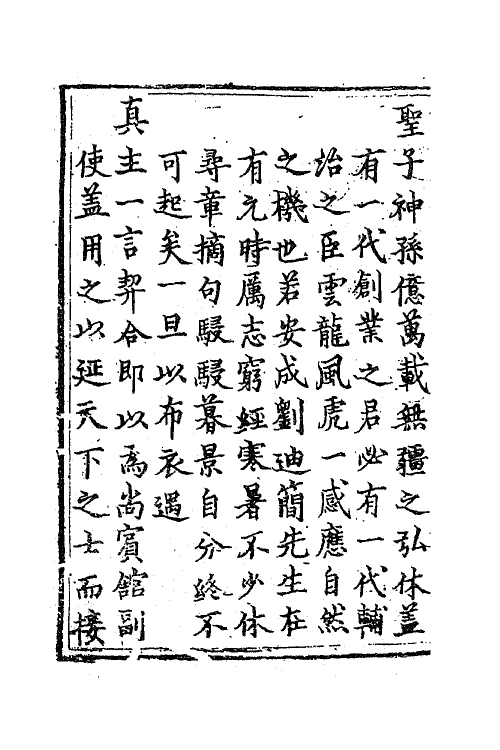 聖子神孫億萬載無疆之弘休蓋
有一代創業之君必有一代輔
治之臣雲龍風虎一感應自然
之機也若安成劉迪簡先生在
有元時厲志窮經寒暑不少休
尋章摘句駸駸暮景自分終不
可起矣一旦以布衣遇
真主一言契合即以爲尚賓館副
使蓋用之以延天下之士而接